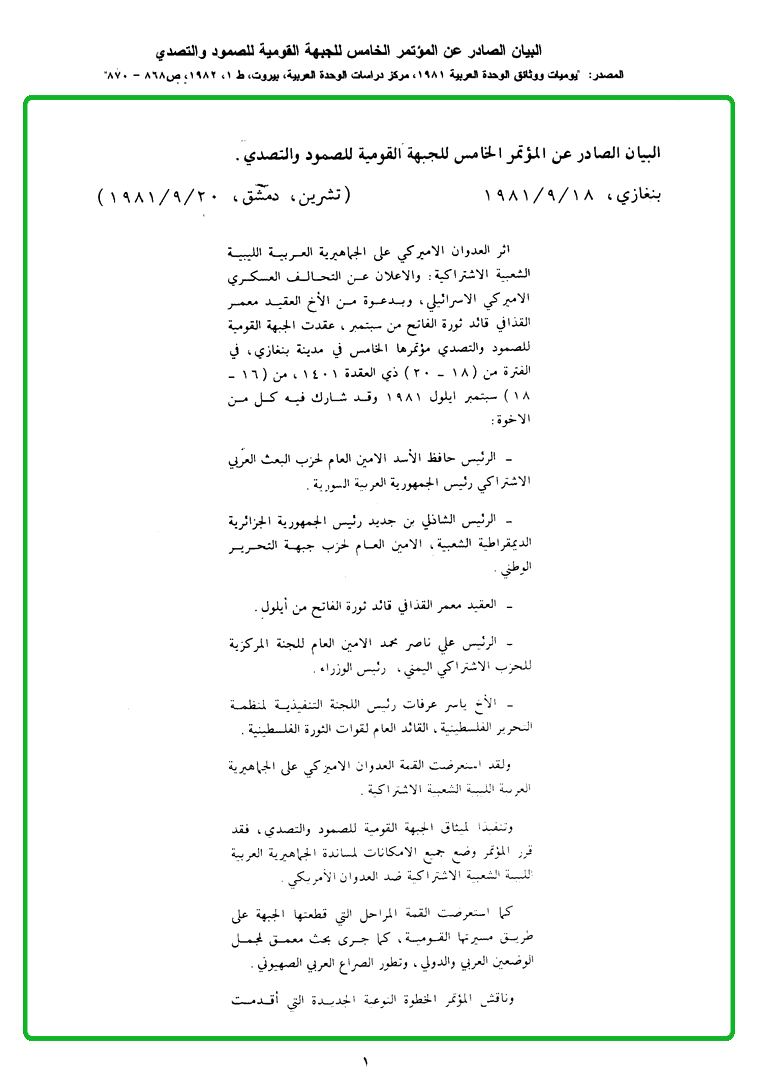 البيان الصادر عن المؤتمر الخامس للجبهة القومية للصمود والتصدي
المصدر: "يوميات ووثائق الوحدة العربية ١٩٨١، مركز دراسات الوحدة العربية، بيروت، ط ١، ١٩٨٢، ص٨٦٨ - ٨٧٠"
البيان الصادر عن المؤتمر الخامس للجبهة القومية للصمود والتصدي .
بنغازي، ١٩٨١/٩/١٨ (تشرين، دمشق، ١٩٨١/٩/٢٠)
اثر العدوان الاميركي على الجماهيرية العربية الليبية
الشعبية الاشتراكية: والاعلان عن التحالف العسكري
الاميركي الاسرائيلي، وبدعوة من الأخ العقيد معمر
القذافي قائد ثورة الفاتح من سبتمبر، عقدت الجبهة القومية
للصمود والتصدي مؤتمرها الخامس في مدينة بنغازي، في
الفترة من (١٨ - ٢٠) ذي العقدة ١٤٠١، من (١٦ -
١٨) سبتمبر ايلول ١٩٨١ وقد شارك فيه كل من
الاخوة:
- الرئيس حافظ الأسد الامين العام لحزب البعث العربي
الاشتراكي رئيس الجمهورية العربية السورية .
- الرئيس الشاذلي بن جديد رئيس الجمهورية الجزائرية
الديمقراطية الشعبية، الامين العام لحزب جبهة التحرير
الوطني .
- العقيد معمر القذافي قائد ثورة الفاتح من أيلول .
- الرئيس علي ناصر محمد الامين العام للجنة المركزية
للحزب الاشتراكي اليمني، رئيس الوزراء .
- الأخ ياسر عرفات رئيس اللجنة التنفيذية لمنظمة
التحرير الفلسطينية، القائد العام لقوات الثورة الفلسطينية .
ولقد استعرضت القمة العدوان الاميركي على الجماهيرية
العربية الليبية الشعبية الاشتراكية .
وتنفيذا لميثاق الجبهة القومية للصمود والتصدي، فقد
قرر المؤتمر وضع جميع الامكانات لمساندة الجماهيرية العربية
الليبية الشعبية الاشتراكية ضد العدوان الأمريكي .
كما استعرضت القمة المراحل التي قطعتها الجبهة على
طريق مسيرتها القومية، كما جرى بحث معمق لمجمل
الوضعين العربي والدولي، وتطور الصراع العربي الصهيوني .
وناقش المؤتمر الخطوة النوعية الجديدة التي أقدمت
١